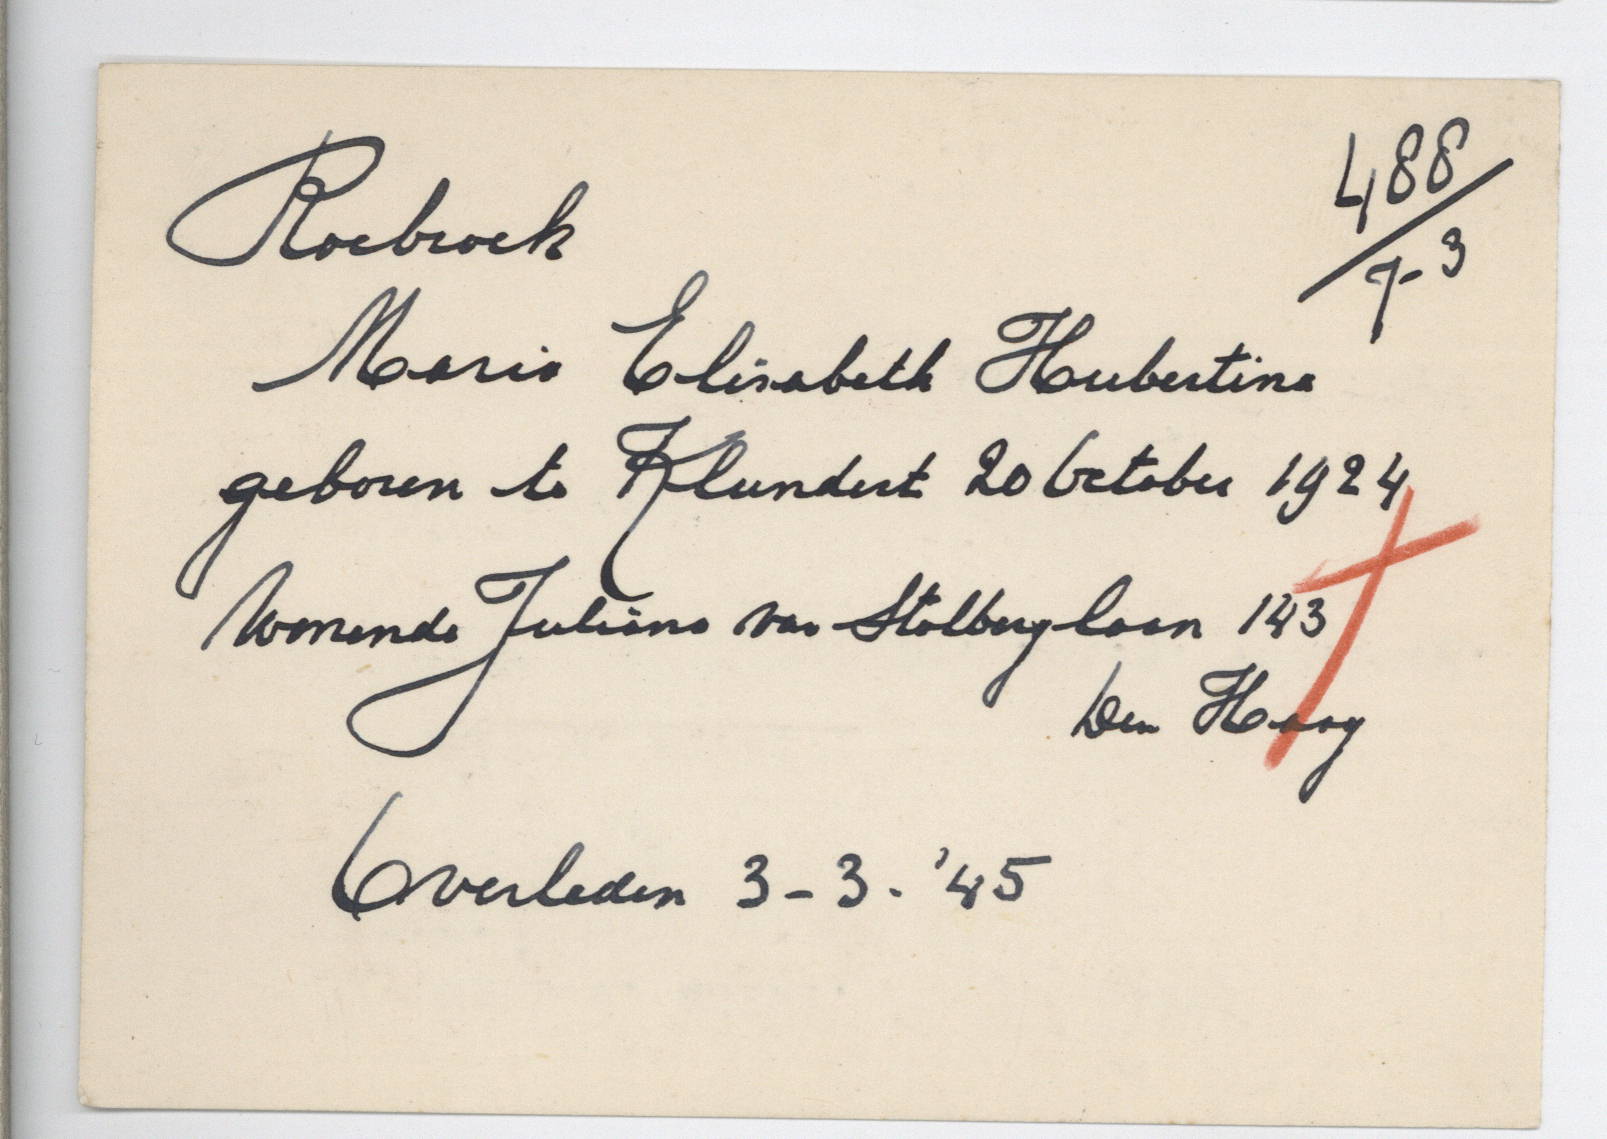 488
7-3
Roebroek
Maria Elisabeth Hubertina
geboren te Klundert 20 October 1924
Wonende Juliana van Stolberglaan 143
Den Haag
Overleden 3-3-'45